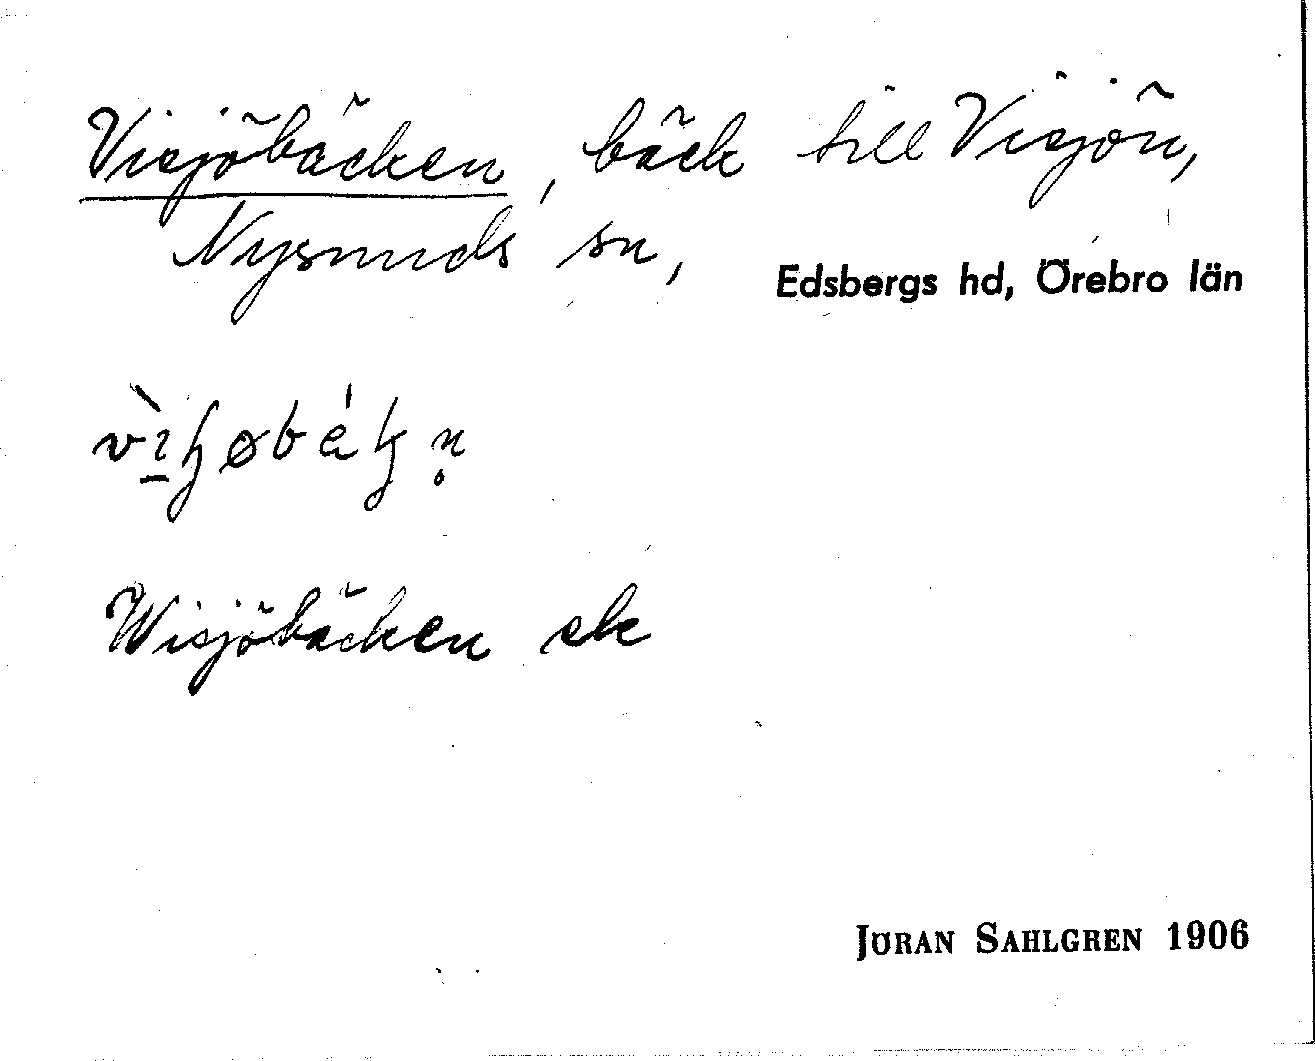 Visjöbäcken, bäck till Visjön,
Nysunds sn, Edsbergs hd, Örebro län
Wisjöbäcken ek
JÖRAN SAHLGREN 1906